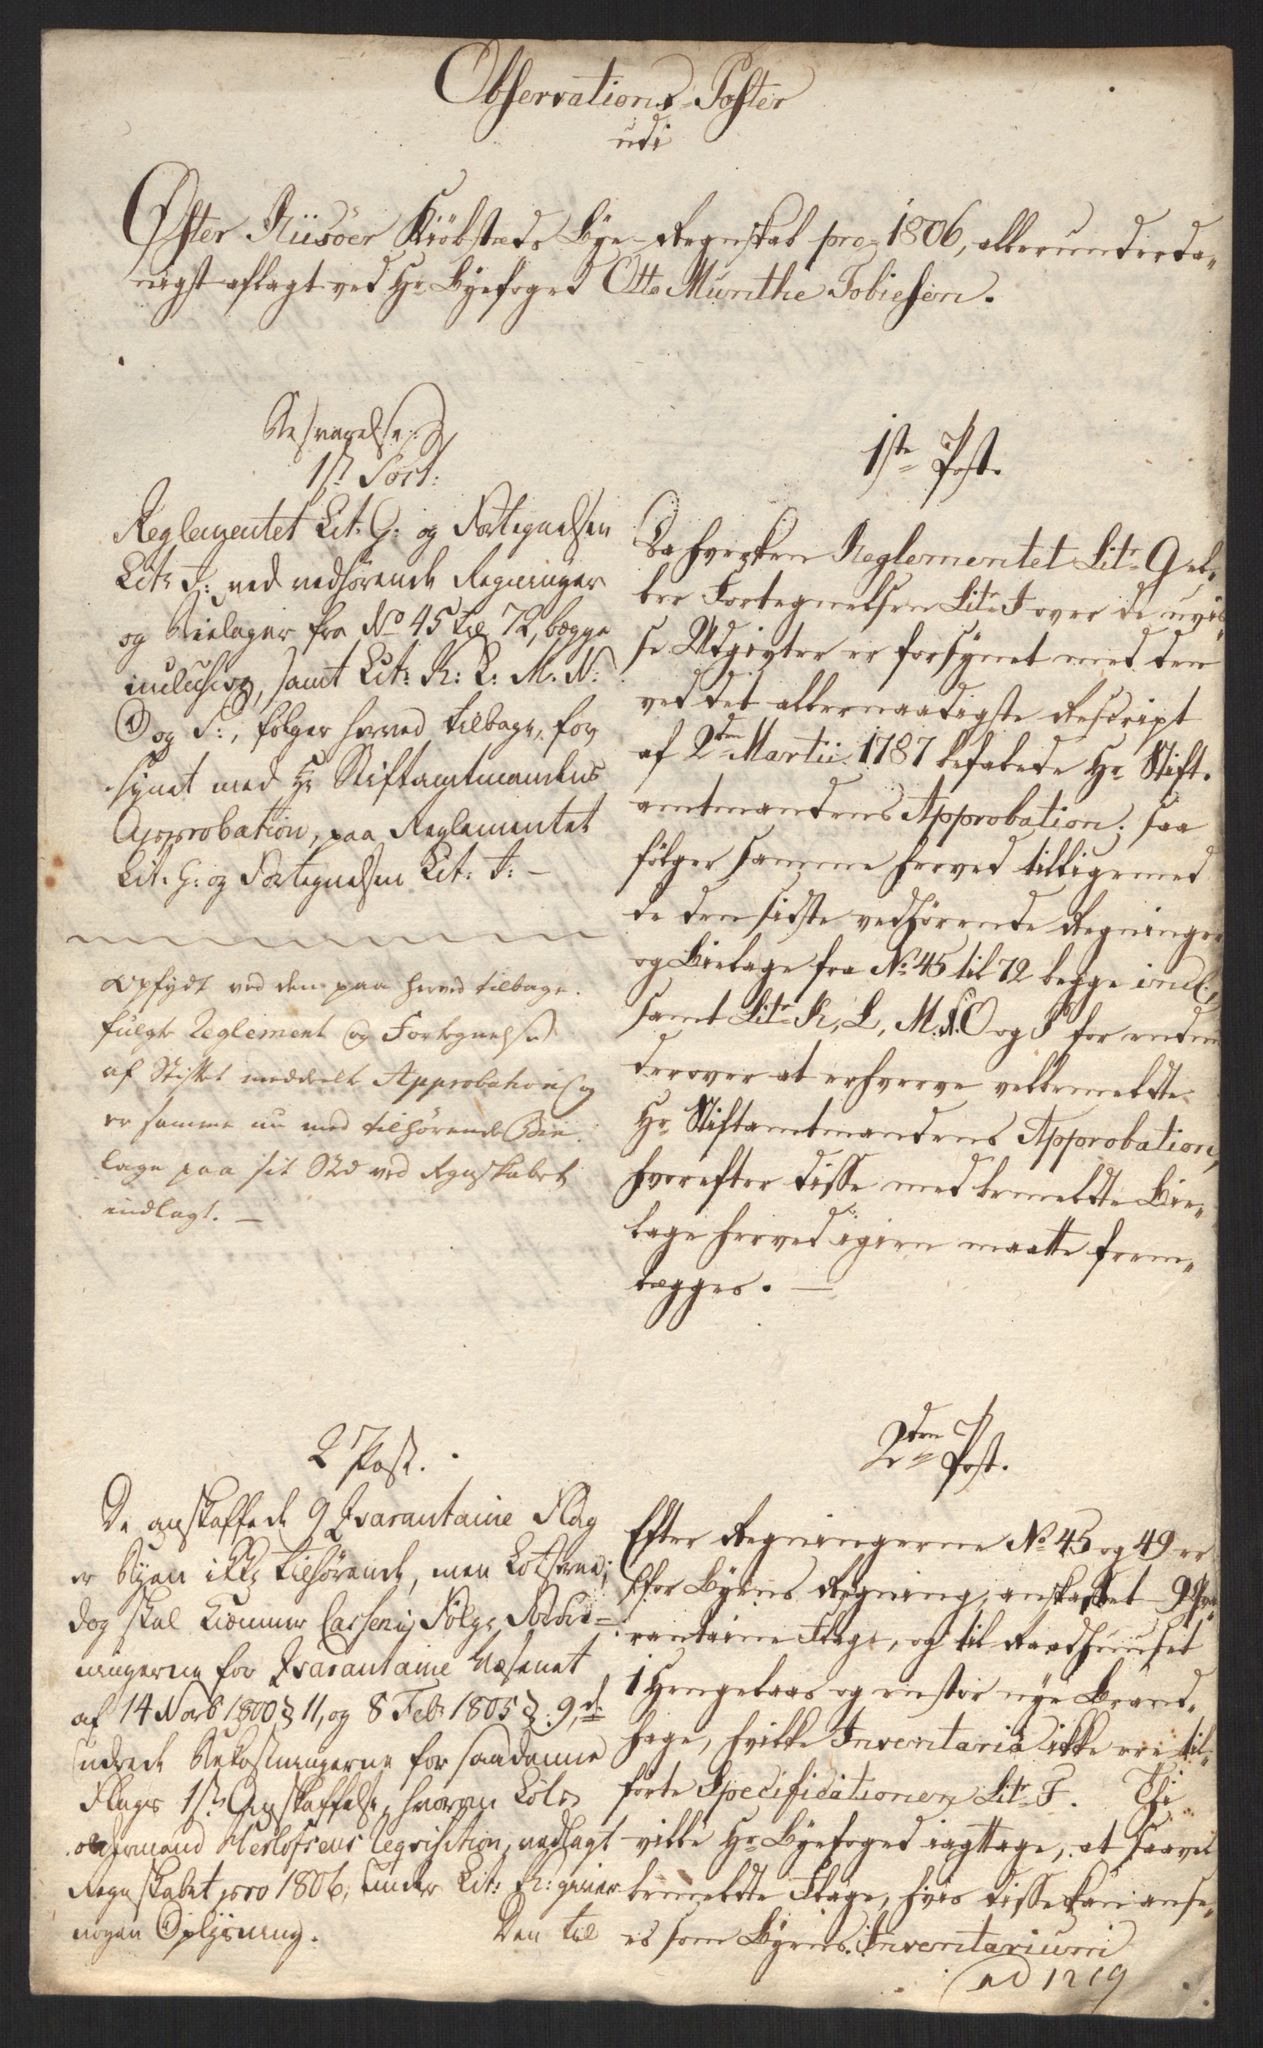 Observations-Poster
udi
Øster Riisöer Kiöbsteds Bye-Regnskab pro 1806, allerunderda-
nigst aflagt ved Hr Byefoged Otto Munthe Tobiesen.
Besvarelser
1st Post:
Reglementet Lit. G: og Fortegnelsen
Litr I: med vedhörende Regninger
og Bielager fra No 45 til 72, begge
inclusive, samt Lit: K: L: M. N:
O og P:, følger herved tilbage, for
synet med Hr Stiftamtmandens
Approbation, paa Reglementet
Lit. G: og Fortegnelsen Lit: I: -
Opfyldt ved den paa herved tilbage-
fulgte Reglement og Fortegnelse
af Stiftet meddeelte Approbation, og
er samme nu med tilhørende Bie-
lage paa sit Sted ved Regnskabet
indlagt. -
1ste Post.
Da hverken Reglementet Litr G el-
ler Fortegnelsen Litr I over de uvis-
se Udgivter er forsÿnet med den
ved det allernaadigste Rescript
af 2den Martii 1787 befalede Hr Stift-
amtmandens Approbation; saa
fölger samme herved tilligemed
de den sidste vedhörende Regninger
og Bielage fra No 45 til 72 begge incl.
samt Litr K, L, M. N. O og P for endnu
derover at erhverve velbemeldte
Hr Stiftamtmandens Approbation,
hvorefter disse med bemeldte Bie-
lage herved igien maatte frem-
lægges. -
2 Post.
De anskaffede 9 Qvarantaine Flag
er Byen ikke tilhørende, men Lotserne;
dog skal Kiæmner Carsen, ifølge Forord-
ningerne for Qvarantaine Væsenet
af 14 Novb 1800 § 11, og 8 Feb 1805 § 9,
udrede Bekostningerne for saadanne
Flages 1ste Anskaffelse, hvorom Lots
oldermand Herlofsens Reqvisition, vedlagt
Regnskabet pro 1806, under Lit: K: giver
nogen Oplysning. Den til
2den Post.
Efter Regningerne No 45 og 49 er
for Byens Regning, anskaffet 9 Qva-
rantaine Flage, og til Raadhuuset
1 Hengelaas og en stor nye Brand-
hage, hvilke Inventaria ikke ere til-
förte Specificationen Litr F. Thi
ville Hr Byefoged iagttage, at saavel
bemeldte Flage, hvis disse kan anse-
es som Byens Inventarium
ad 1219